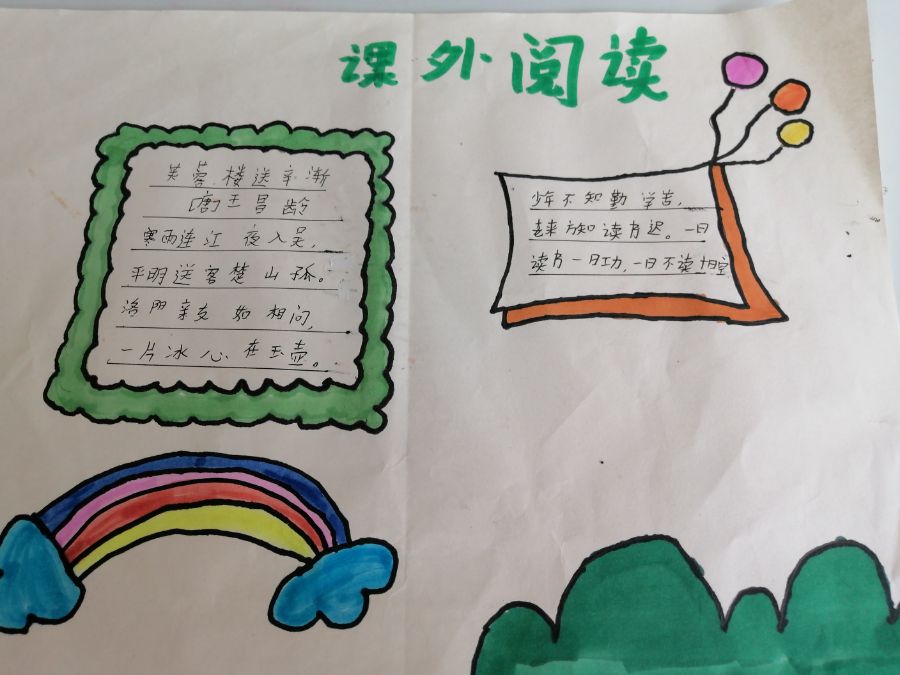 课外阅读
芙蓉楼送辛渐
[唐]王昌龄
寒雨连江 夜入吴,
平明送客楚山孤。
洛阳亲友如相问,
一片冰心在玉壶。
少年不知勤学苦,
老来方知读书迟。一日
读书一日功,一日不读十日空